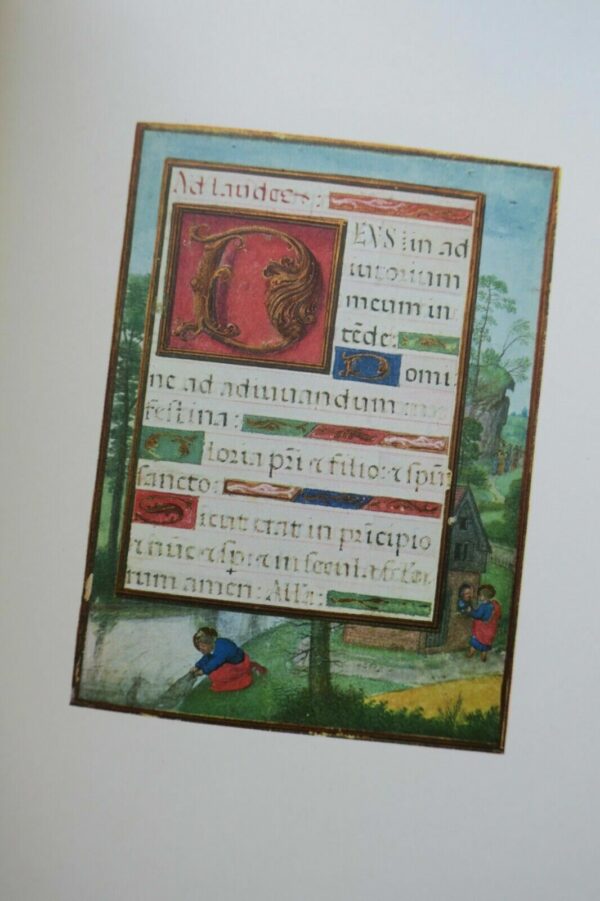 Ad laudes:
DEVS in ad
iutorium
meum in
tēde:
Domi
ne ad adiuuandum me
festina:
Gloria pr̄i ⁊ filio: ⁊ sp̄ui
sancto:
Sicut erat in prīcipio
⁊ nūc ⁊ sp̄: ⁊ in secula
rum amen: All'a: